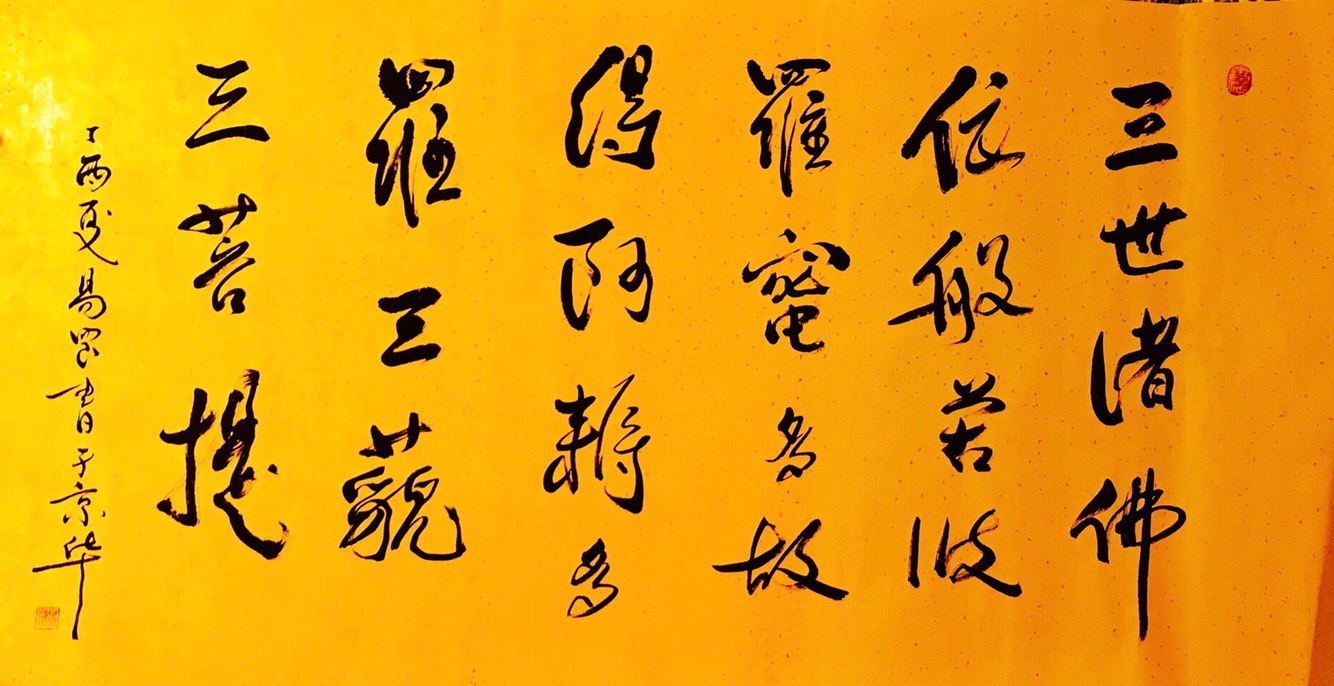 三世诸佛
依般若波
羅蜜多故
得阿耨多
羅三藐
三菩提
丁酉夏易書于京华